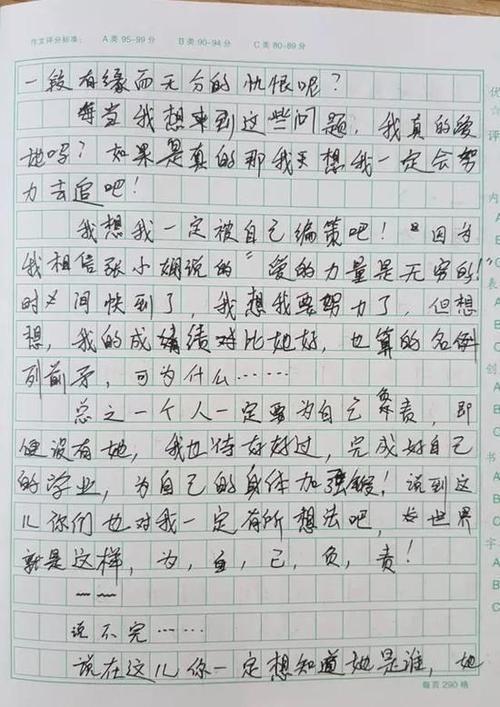 作文评分标准: A类 95-99分 B类 90-94分 C类 80-89分
一段有缘而无分的忧恨呢?
每当我想来到这些问题,我真的爱
她吗?如果是真的那我天想我一定会努
力去追吧!
我想我一定被自己鞭策吧!"因为
我相信张小娴说的"爱的力量是无穷的!
时间快到了,我想我要努力了,但想
想,我的成绩对比她好,也算的名例
列前矛,可为什么……
总之一个人一定要为自己负责,即
便没有她,我也待好好过,完成好自己
的学业,为自己的身体加强锻!说到这
儿你们也对我一定有所想法吧,世界
就是这样,为,自,己,负,责!
~~
说不完……
说在这儿你一定想知道她是谁,她
每页290格
伏
评
内
A
B
C
表
A
B
C
创
A
书
A
字
A
B
C